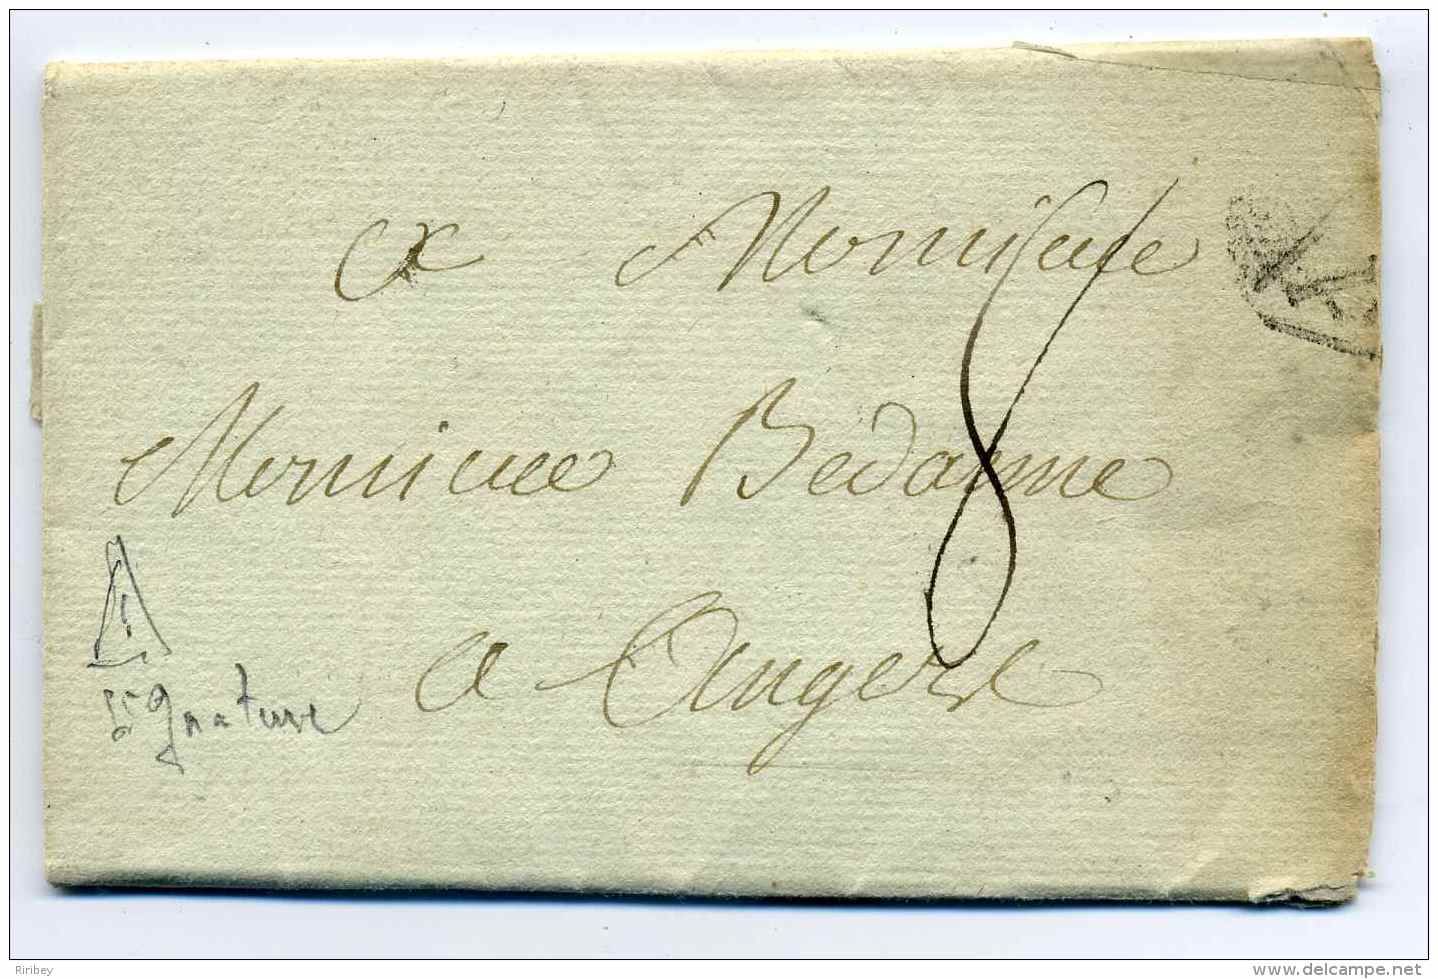 a Monsieur
Monsieur Bedanne
8
a Angers
signature
Riribey
www.delcampe.net